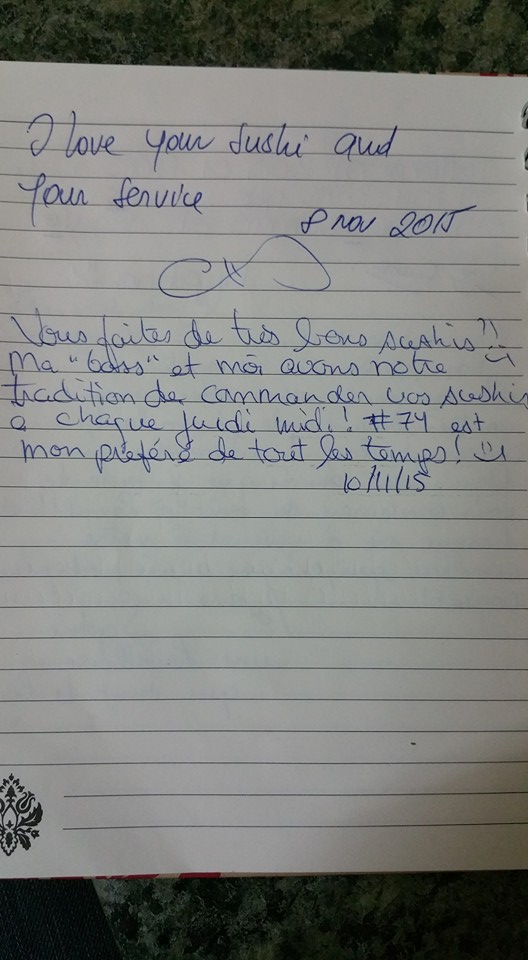 I love your sushi and
your service
8 nov 2015
Vous faites de très bons sushis!!
Ma "boss" et moi avons notre
tradition de commander vos sushis
a chaque jeudi midi! #74 est
mon préféré de tout les temps!
10/11/15